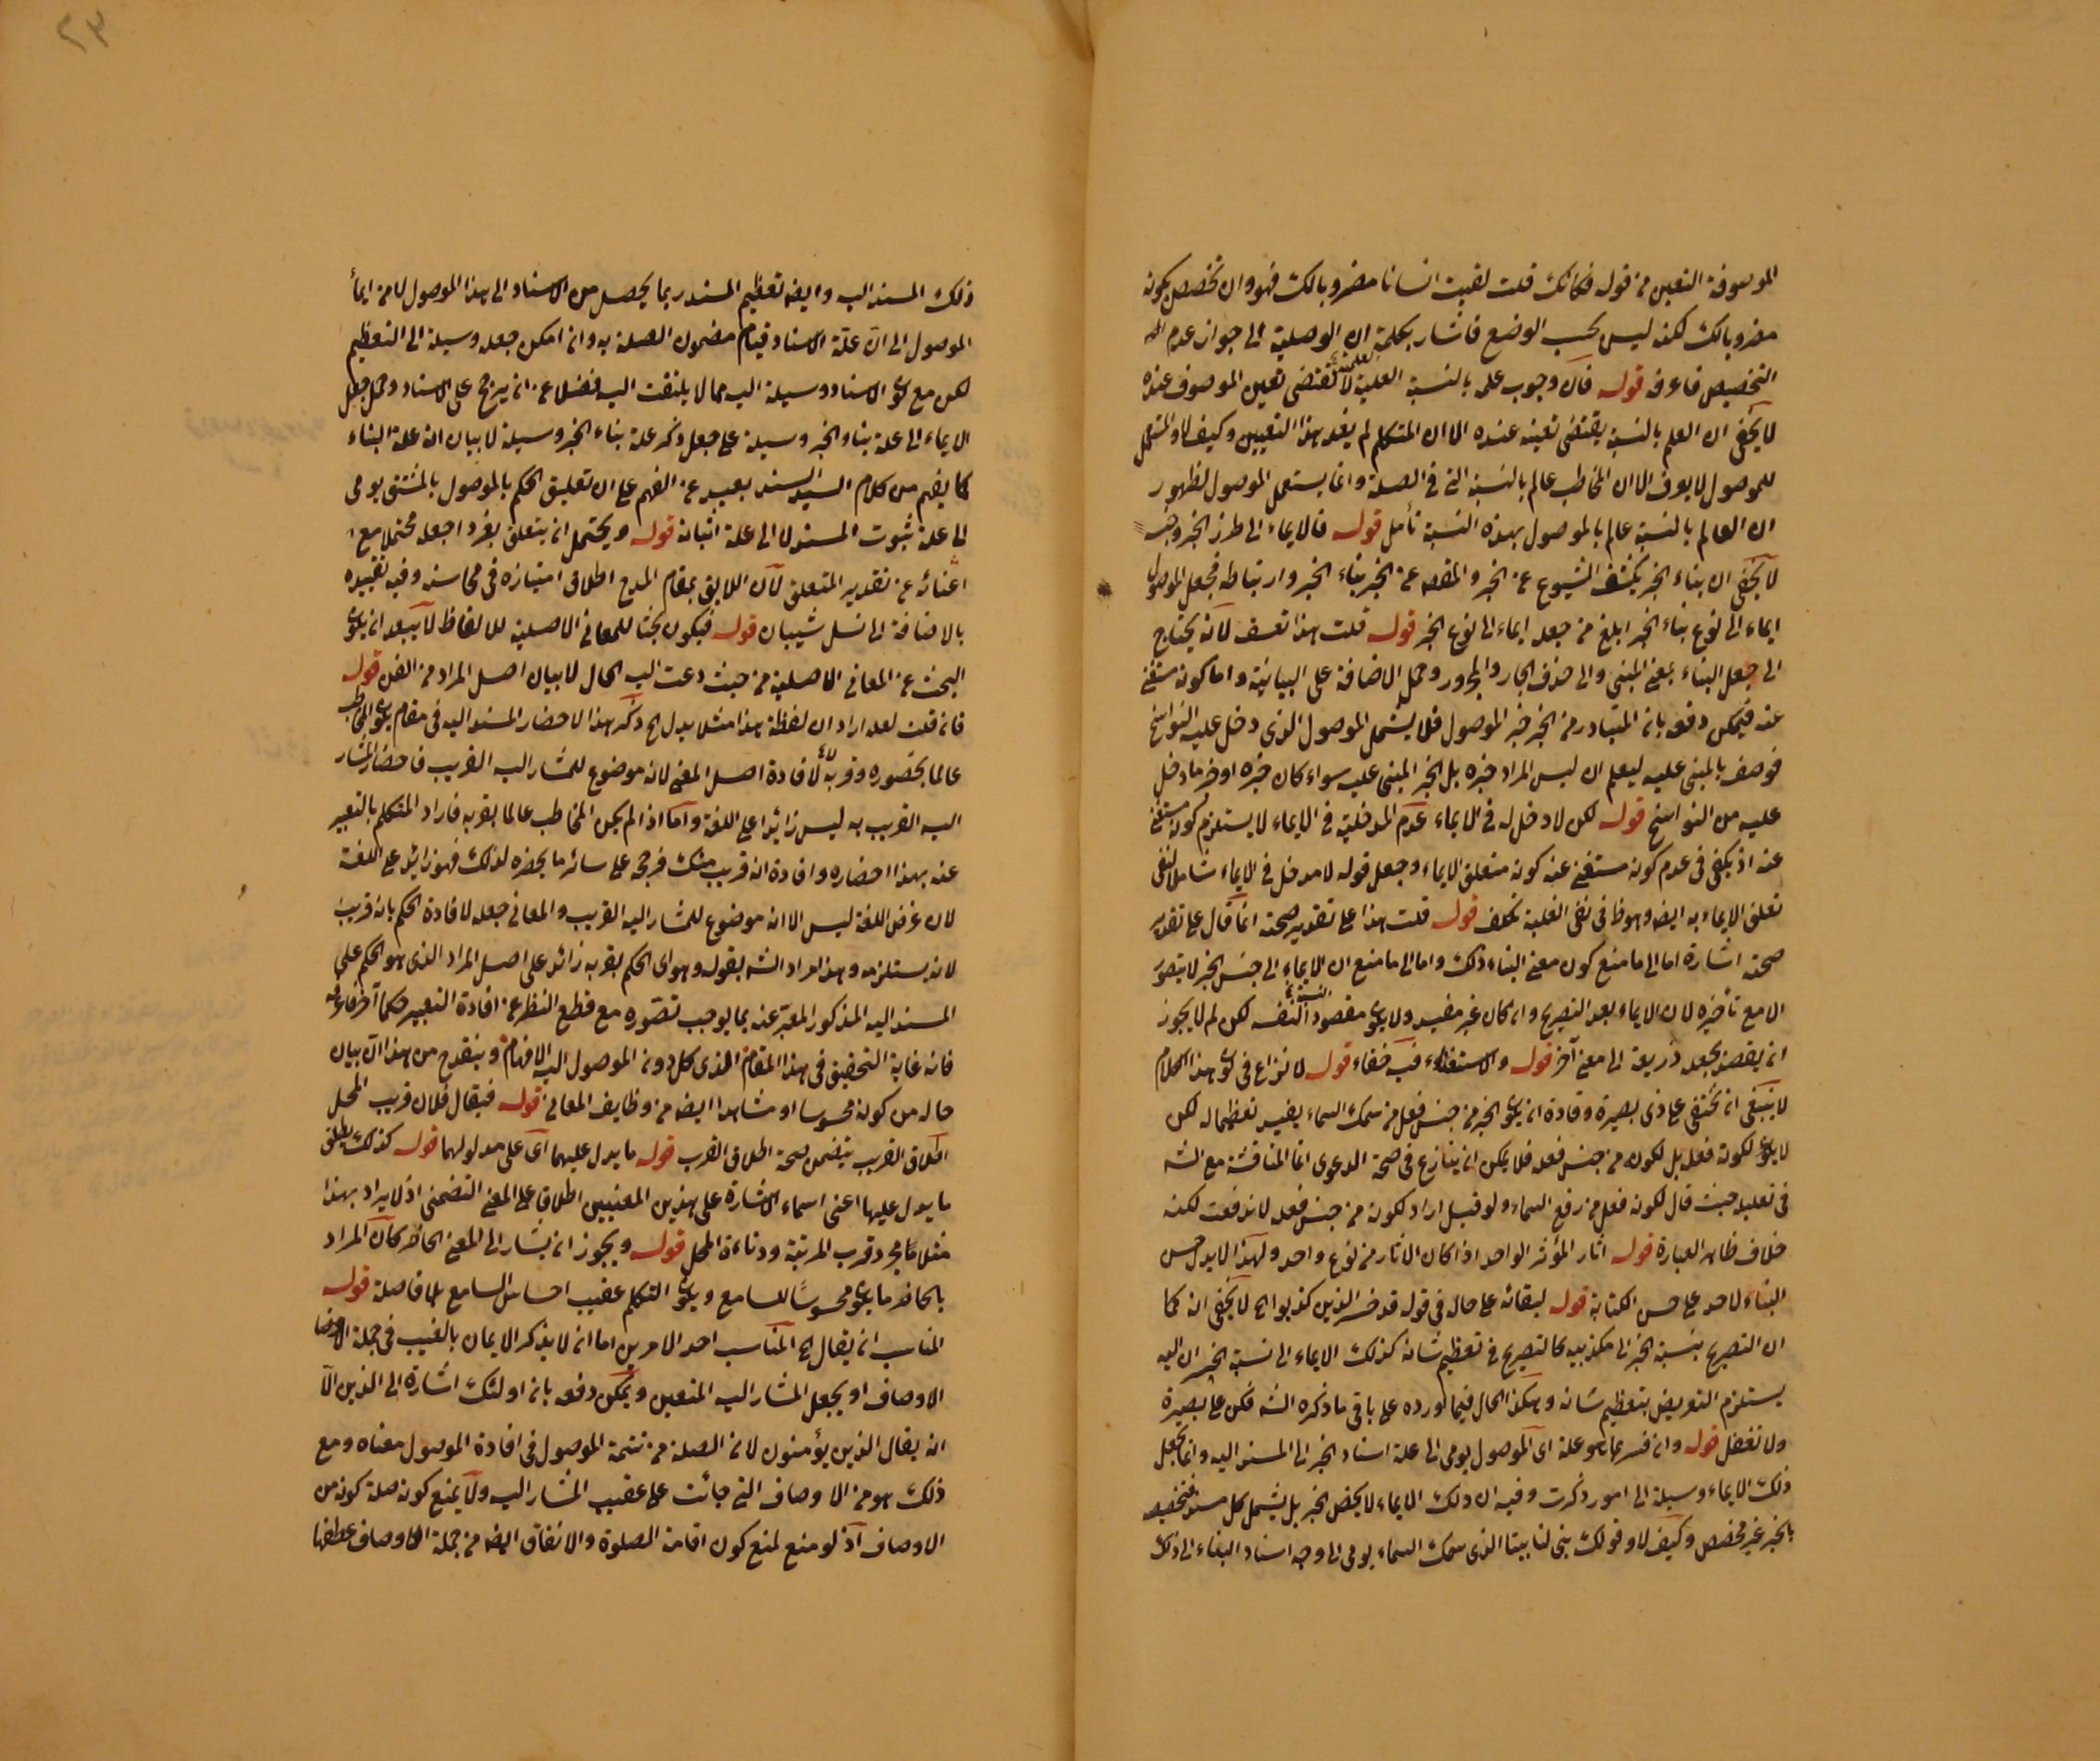 الموصوفة التعين من قوله فكانك قلت لقيت انسانا مضروبا لك فهو وان تخصص بكونه
مضروبا لك لكنه ليس بحسب الوضع فاشار بكلمة ان الوصلية الى جواز عدم
التخصيص فاعرفه قوله فان وجوب علمه بالنسبة العلية لا تقتضى تعين الموصوف عنده
لا يخفى ان العلم بالنسبة يقتضى تعينه عنده الا ان المتكلم لم يفد بهذا التعيين وكيف لا والمستعمل
للموصول لا يعرف الا ان المخاطب عالم بالنسبة التى فى الصلة وانما يستعمل الموصول لظهور
ان العالم بالنسبة عالم بالموصول بهذه النسبة تأمل قوله فالايماء الى طرز الخبر وجنسه
لا يخفى ان بناء الخبر يكشف الشيوع عن الخبر والمقصد من الخبر بناء الخبر وارتباطه فجعل الموصول
ايماء الى نوع بناء الخبر ابلغ من جعله ايماء الى نوع الخبر قوله قلت هذا تعسف لانه يحتاج
الى جعل البناء بمعنى المبنى والى حذف الجار والمجرور وحمل الاضافة على البيانية واما كونه مستغنى
عنه فيمكن دفعه بان المتبادر من الخبر خبر الموصول فلا يشمل الموصول الذى دخل عليه النواسخ
فوصف بالمبنى عليه ليعلم ان ليس المراد خبره بل الخبر المبنى عليه سواء كان خبره او خبر ما دخل
عليه من النواسخ قوله لكن لا دخل له فى الايماء عدم المدخلية فى الايماء لا يستلزم كونه مستغنى
عنه اذ يكفى فى عدم كونه مستغنى عنه كونه متعلق الايماء وجعل قوله لا مدخل فى الايماء شاملا لنفى
تعلق الايماء به ايضه وهو ظ فى نفى الغلبة تكلف قوله قلت هذا على تقدير صحته انما قال على تقدير
صحته اشارة اما الى ما منع كون معنى البناء ذلك واما الى ما منع ان الايماء الى جنس الخبر لا يتصور
الا مع تأخيره لان الايماء بعد التصريح وان كان غير مفيد ولا يكون مقصودا لنفسه لكن لم لا يجوز
ان يقصد بجعله ذريعة الى معنى آخر قوله والاستقراء فيه خفاء قوله لا نزاع فى كون هذا الكلام
لا ينبغى ان يختفى على ذى بصيرة وقادة ان يكون الخبر من جنس فعل من سمك السماء يفيد تعظيما له لكن
لا يكون لكونه فعله بل لكونه من جنس فعله فلا يمكن ان ينازع فى صحة الدعوى انما المناقشة مع الشه
فى تعليله حيث قال لكونه فعل من رفع السماء ولو قيل اراد لكونه من جنس فعله لاندفعت لكنه
خلاف ظاهر العبارة قوله آثار المؤثر الواحد اذا كان الآثار من نوع واحد ولهذا لا يدل حسن
البناء لاحد على حسن الكتابة قوله لبقائه على حاله فى قوله قد خسر الذين كذبوا لا يخفى انه كما
ان التصريح بنسبة الخبر الى مكذبيه كالتصريح فى تعظيم شانه كذلك الايماء الى نسبة الخسران اليه
يستلزم التعريض بتعظيم شانه وهكذا الحال فيما اورده على باقى ما ذكره الشه فكن على بصيرة
ولا تغفل قوله وان فسر بما هو علة اى الموصول يومى الى علة اسناد الخبر الى المسند اليه وانما يجعل
ذلك الايماء وسيلة الى امور ذكرت وفيه ان ذلك الايماء لا يخص الخبر بل يشمل كل مسند فتخصيصه
بالخبر غير مخصص وكيف لا وقولك بنى لنا بيتا الذى سمك السماء يومى الى وجه اسناد البناء الى ذلك
ذلك المسند اليه وايضه تعظيم المسند ربما يحصل من الاسناد الى هذا الموصول لا من ايماء
الموصول الى ان علة الاسناد قيام مضمون الصلة به وان امكن جعله وسيلة الى التعظيم
لكن مع كون الاسناد وسيلة اليه مما لا يلتفت اليه فضلا عن ان يرجح على الاسناد وحمل جعل
الايماء الى علة بناء الخبر وسيلة على جعل ذكر علة بناء الخبر وسيلة لا بيان انه علة البناء
كما يفهم من كلام السيد السند بعيد عن الفهم على ان تعليق الحكم بالموصول بالمشتق يومى
الى علة ثبوت المسند لا الى علة اثباته قوله ويحتمل ان يتعلق بفردا جعله محتملا مع
اغنائه عن تقدير المتعلق لان اللايق بمقام المدح اطلاق امتيازه فى محاسنه وفيه تقييده
بالاضافة الى نسل شيبان قوله فيكون بحثا للمعانى الاصلية للالفاظ لا يبعد ان يكون
البحث عن المعانى الاصلية من حيث دعت اليه الحال لا بيان اصل المراد من الفن قوله
فان قلت لعله اراد ان لفظة هذا مثلا يدل ذكر هذا لاحضار المسند اليه فى مقام يكون المخاطب
عالما بحضوره وقربه لافادة اصل المعنى لانه موضوع للمشار اليه القريب فاحضار المشار
اليه القريب به ليس زائدا على اللغة واما اذا لم يكن المخاطب عالما بقربه فاراد المتكلم بالتعبير
عنه بهذا احضاره وافادة انه قريب منك فرجحه على سائر ما يحضره لذلك فهو زائد على اللغة
لان غرض اللغة ليس الا انه موضوع للمشار اليه القريب والمعانى جعله لافادة الحكم بانه قريب
لانه يستلزمه وهذا مراد الشه بقوله وهو اى الحكم بقربه زائد على اصل المراد الذى هو الحكم على
المسند اليه المذكور المعبر عنه بما يوجب تصوره مع قطع النظر عن افادة التعبير حكما آخر فاعرفه
فانه غاية التحقيق فى هذا المقام الذى كل دونه الموصول اليه الافهام وينقدح من هذا ان بيان
حاله من كونه محسوسا او مشاهدا ايضه من وظايف المعانى قوله فيقال فلان قريب المحل
اطلاق القريب يتضمن صحة اطلاق القرب قوله ما يدل عليهما اى على مدلولهما قوله كذلك يطلق
ما يدل عليها اعنى اسماء الاشارة على هذين المعنيين اطلاق على المعنى التضمنى اذ لا يراد بهذا
مثلا مجرد قرب المرتبة ودناءة المحل قوله ويجوز ان يشار الى المعنى الحاضر كان المراد
بالحاضر ما يكون محسوسا للسامع ويكون التكلم عقيب احساس السامع بلا فاصلة قوله
المناسب ان يقال المناسب احد الامرين اما ان لا يذكر الايمان بالغيب فى جملة
الاوصاف او يجعل المشار اليه المتعين ويمكن دفعه بان اولئك اشارة الى الذين
ان يقال الذين يؤمنون لان الصلة من تتمة الموصول فى افادة الموصول معناه ومع
ذلك هو من الاوصاف التى جائت على عقيب المشار اليه ولا يمنع كونه صلة كونه من
الاوصاف اذ لو منع لمنع كون اقامة الصلوة والانفاق ايضه من جملة الاوصاف لعطفها